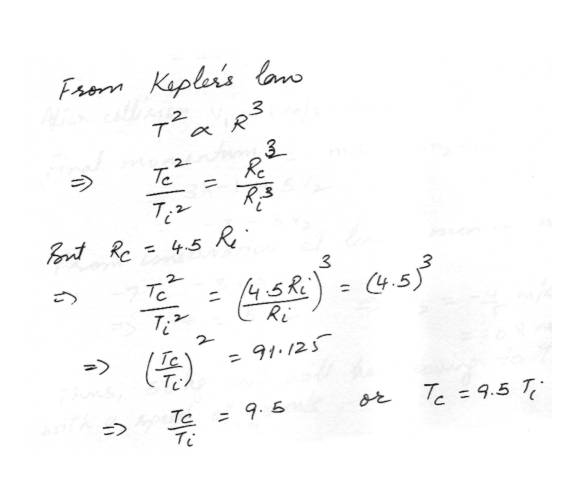 From Kepler's law
T² ∝ R³
⇒ Tc²/Ti² = Rc³/Ri³
But Rc = 4.5 Ri
⇒ Tc²/Ti² = (4.5 Ri/Ri)³ = (4.5)³
⇒ (Tc/Ti)² = 91.125
⇒ Tc/Ti = 9.5 or Tc = 9.5 Ti